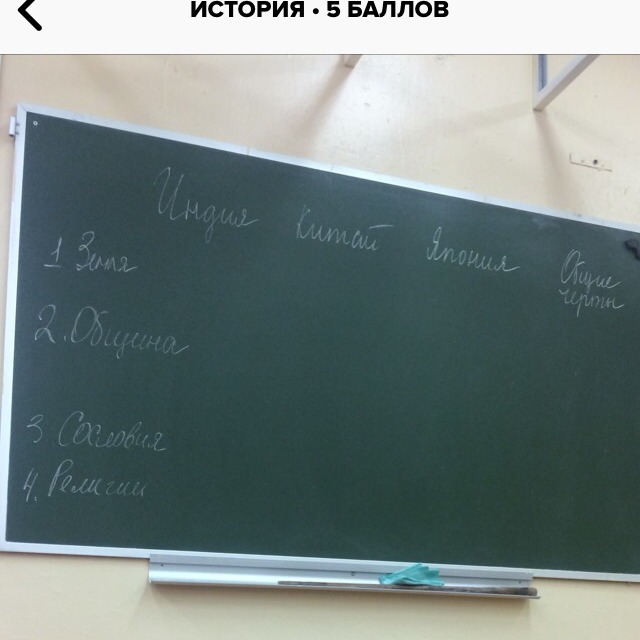 ИСТОРИЯ • 5 БАЛЛОВ
Индия Китай Япония Общие черты
1 Земля
2. Община
3 Сословия
4. Религии